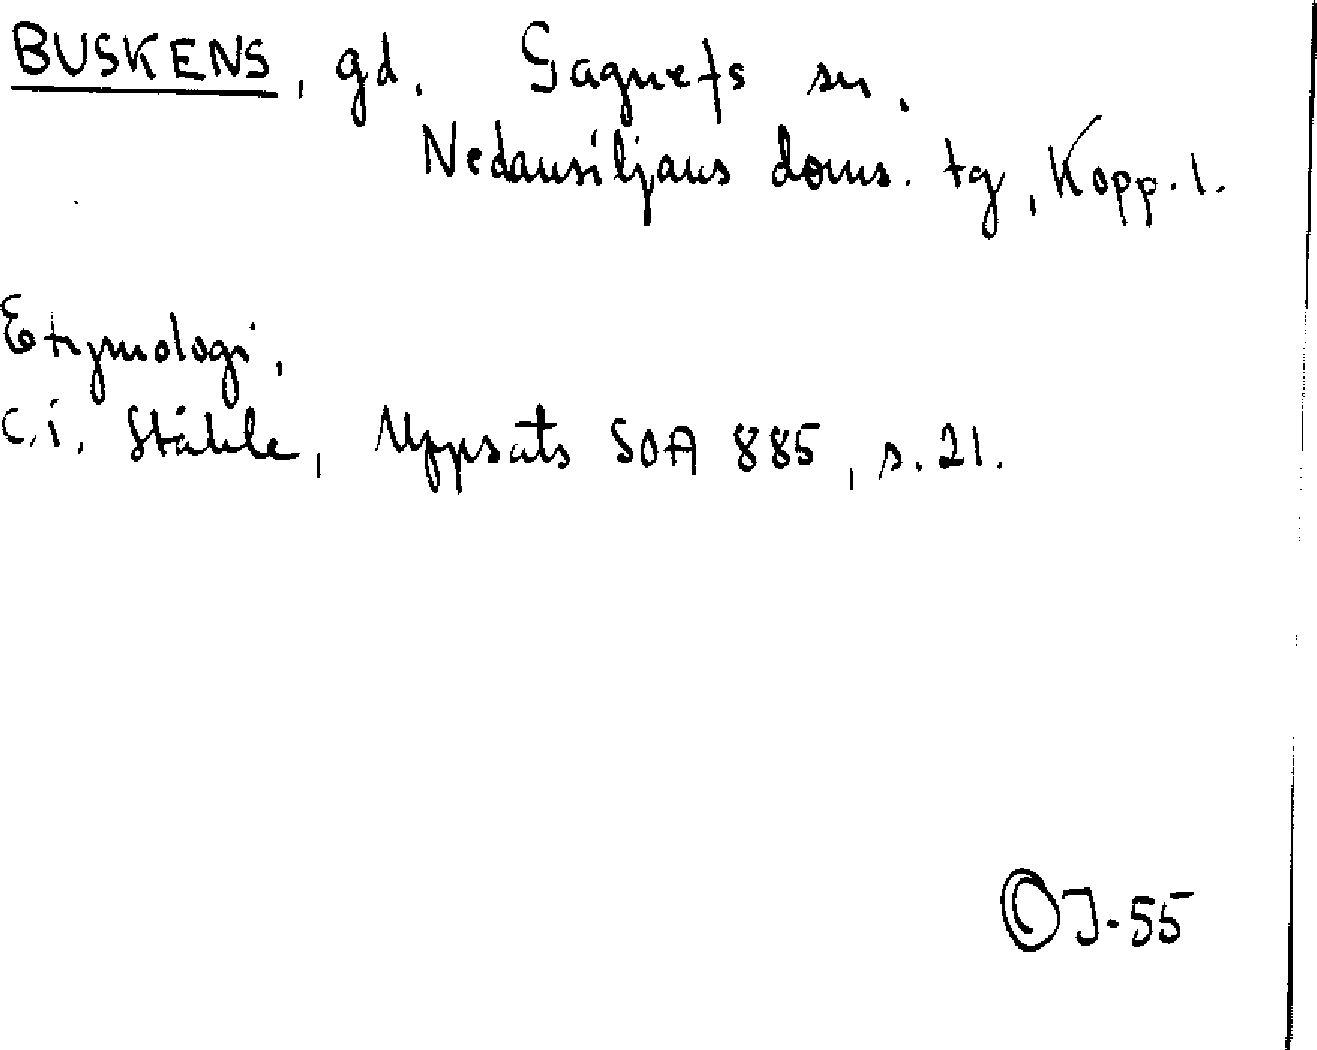 BUSKENS, gd. Gagnefs sn,
Nedansiljans doms. tg, Kopp. l.
Etymologi,
C.i. Ståhle, Uppsats SOA 885, s. 21.
©J-55